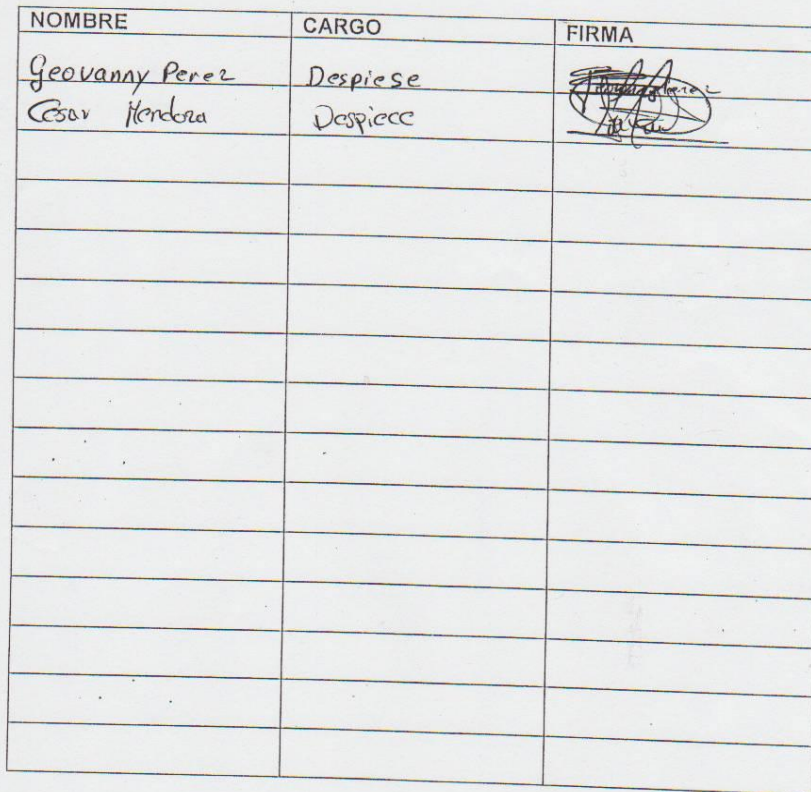 NOMBRE CARGO FIRMA
Geovanny Perez Despiese
Cesar Mendoza Despiece